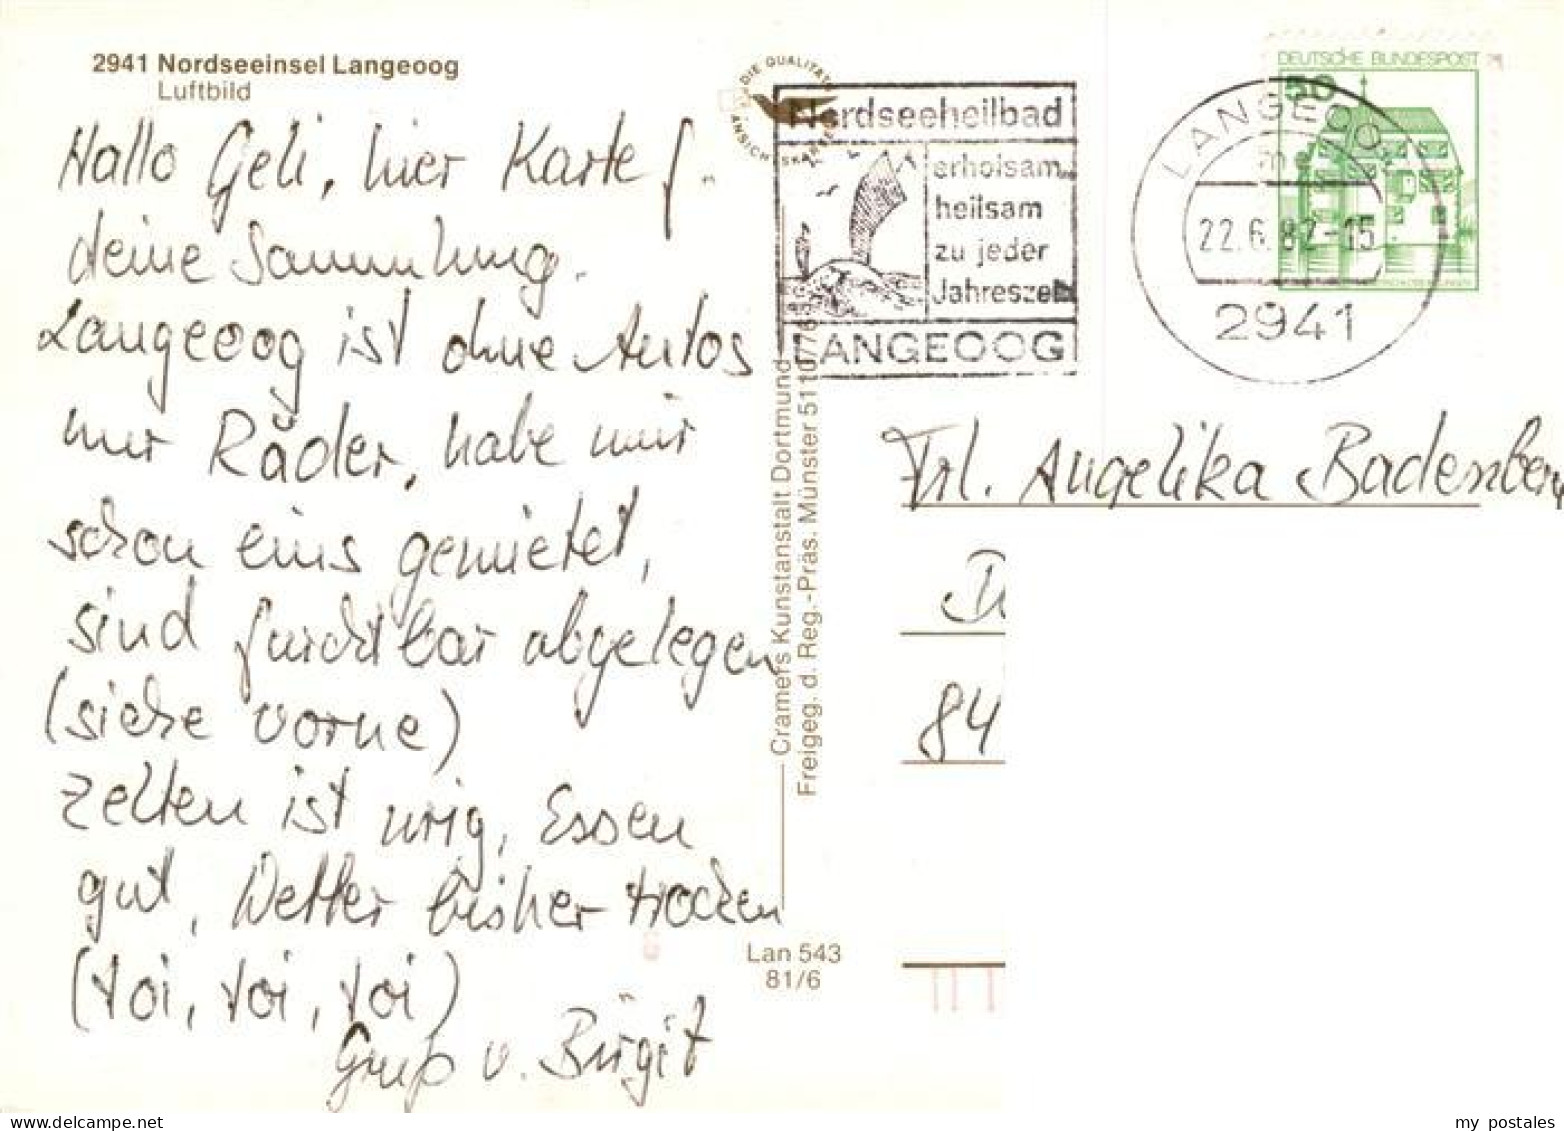 2941 Nordseeinsel Langeoog
Luftbild
Hallo Geli, hier Karte f.
deine Sammlung.
Langeoog ist ohne Autos
nur Räder, habe mir
schon eins gemietet,
sind furchtbar abgelegen
(siehe vorne)
Zelten ist urig, Essen
gut, Wetter bisher trocken
(toi, toi, toi)
Gruß v. Birgit
DIE QUALITÄTS
ANSICHTSKARTE
Nordseeheilbad
erholsam
heilsam
zu jeder
Jahreszeit
LANGEOOG
LANGEOOG
22.6.82-15
2941
DEUTSCHE BUNDESPOST
50
Cramers Kunstanstalt Dortmund
Freigeg. d. Reg.-Präs. Münster
Lan 543
81/6
Frl. Angelika Badenberg
84
my postales